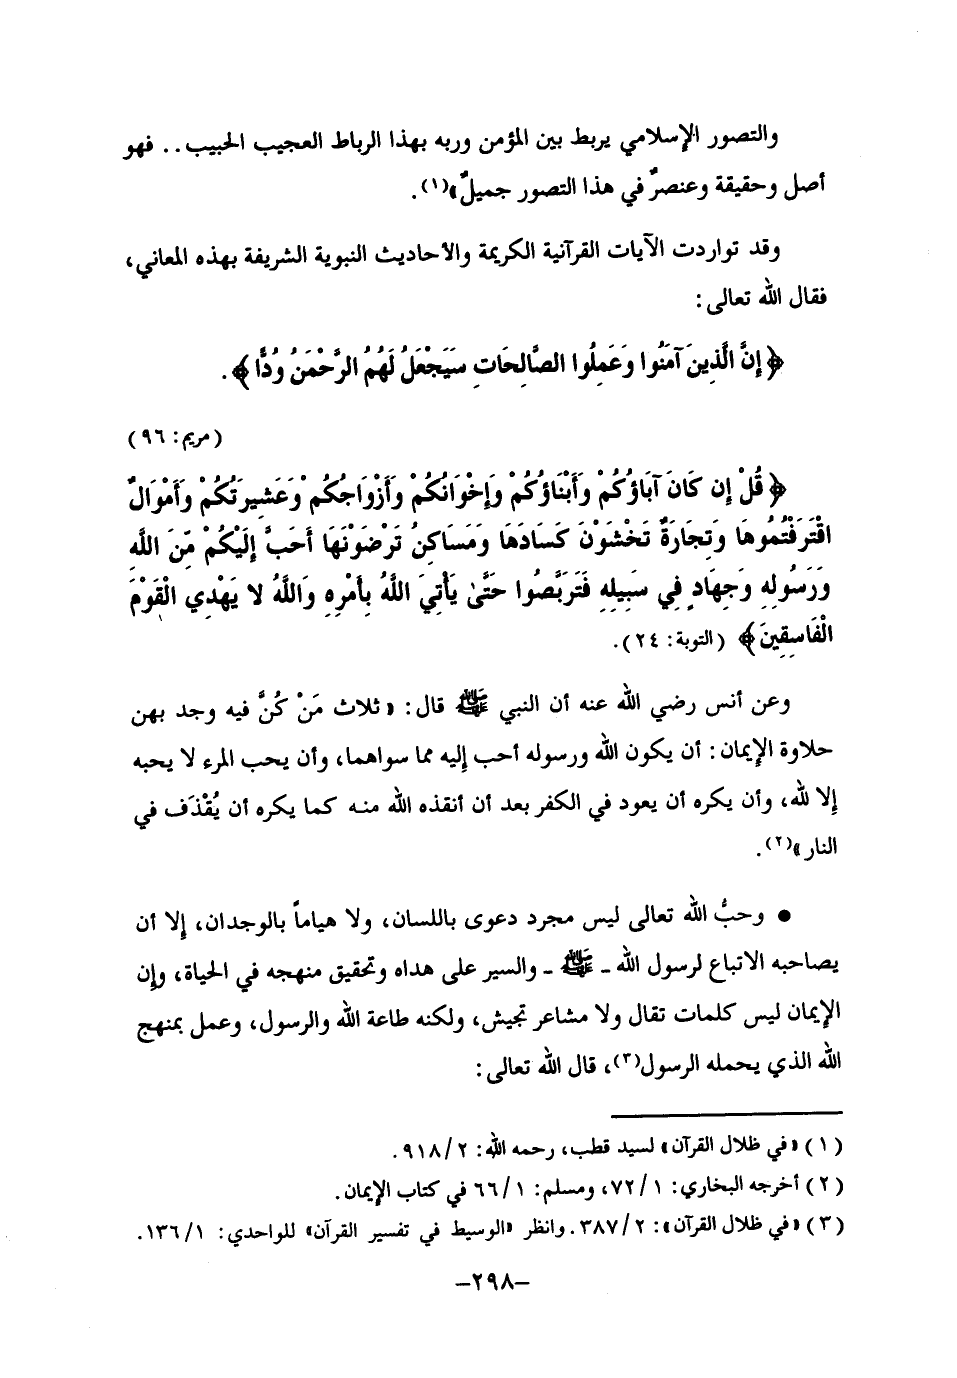 والتصور الإسلامي يربط بين المؤمن وربه بهذا الرباط العجيب الحبيب.. فهو
أصل وحقيقة وعنصرٌ في هذا التصور جميلٌ»(١).
وقد تواردت الآيات القرآنية الكريمة والأحاديث النبوية الشريفة بهذه المعاني،
فقال الله تعالى:
﴿إِنَّ الَّذِينَ آمَنُوا وَعَمِلُوا الصَّالِحَاتِ سَيَجْعَلُ لَهُمُ الرَّحْمَنُ وُدًّا﴾.
(مريم: ٩٦)
﴿قُلْ إِن كَانَ آبَاؤُكُمْ وَأَبْنَاؤُكُمْ وَإِخْوَانُكُمْ وَأَزْوَاجُكُمْ وَعَشِيرَتُكُمْ وَأَمْوَالٌ
اقْتَرَفْتُمُوهَا وَتِجَارَةٌ تَخْشَوْنَ كَسَادَهَا وَمَسَاكِنُ تَرْضَوْنَهَا أَحَبَّ إِلَيْكُمْ مِّنَ اللَّهِ
وَرَسُولِهِ وَجِهَادٍ فِي سَبِيلِهِ فَتَرَبَّصُوا حَتَّىٰ يَأْتِيَ اللَّهُ بِأَمْرِهِ وَاللَّهُ لا يَهْدِي الْقَوْمَ
الْفَاسِقِينَ﴾ (التوبة: ٢٤).
وعن أنس رضي الله عنه أن النبي ﷺ قال: «ثلاث مَنْ كُنَّ فيه وجد بهن
حلاوة الإيمان: أن يكون الله ورسوله أحب إليه مما سواهما، وأن يحب المرء لا يحبه
إلا لله، وأن يكره أن يعود في الكفر بعد أن أنقذه الله منه كما يكره أن يُقْذَف في
النار»(٢).
● وحبُّ الله تعالى ليس مجرد دعوى باللسان، ولا هياماً بالوجدان، إلا أن
يصاحبه الاتباع لرسول الله ـ ﷺ ـ والسير على هداه وتحقيق منهجه في الحياة، وإن
الإيمان ليس كلمات تقال ولا مشاعر تجيش، ولكنه طاعة الله والرسول، وعمل بمنهج
الله الذي يحمله الرسول(٣)، قال الله تعالى:
(١) «في ظلال القرآن» لسيد قطب، رحمه الله: ٢/ ٩١٨.
(٢) أخرجه البخاري: ١/ ٧٢، ومسلم: ١/ ٦٦ في كتاب الإيمان.
(٣) «في ظلال القرآن»: ٢/ ٣٨٧. وانظر «الوسيط في تفسير القرآن» للواحدي: ١/ ١٣٦.
–٢٩٨–